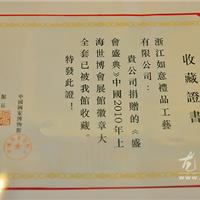 收藏證書
浙江如意禮品工藝
有限公司：
貴公司捐贈的《盛
會盛典》中國2010年上
海世博會展館徽章大
全套已被我館收藏。
特發此證！
館長
中國國家博物館